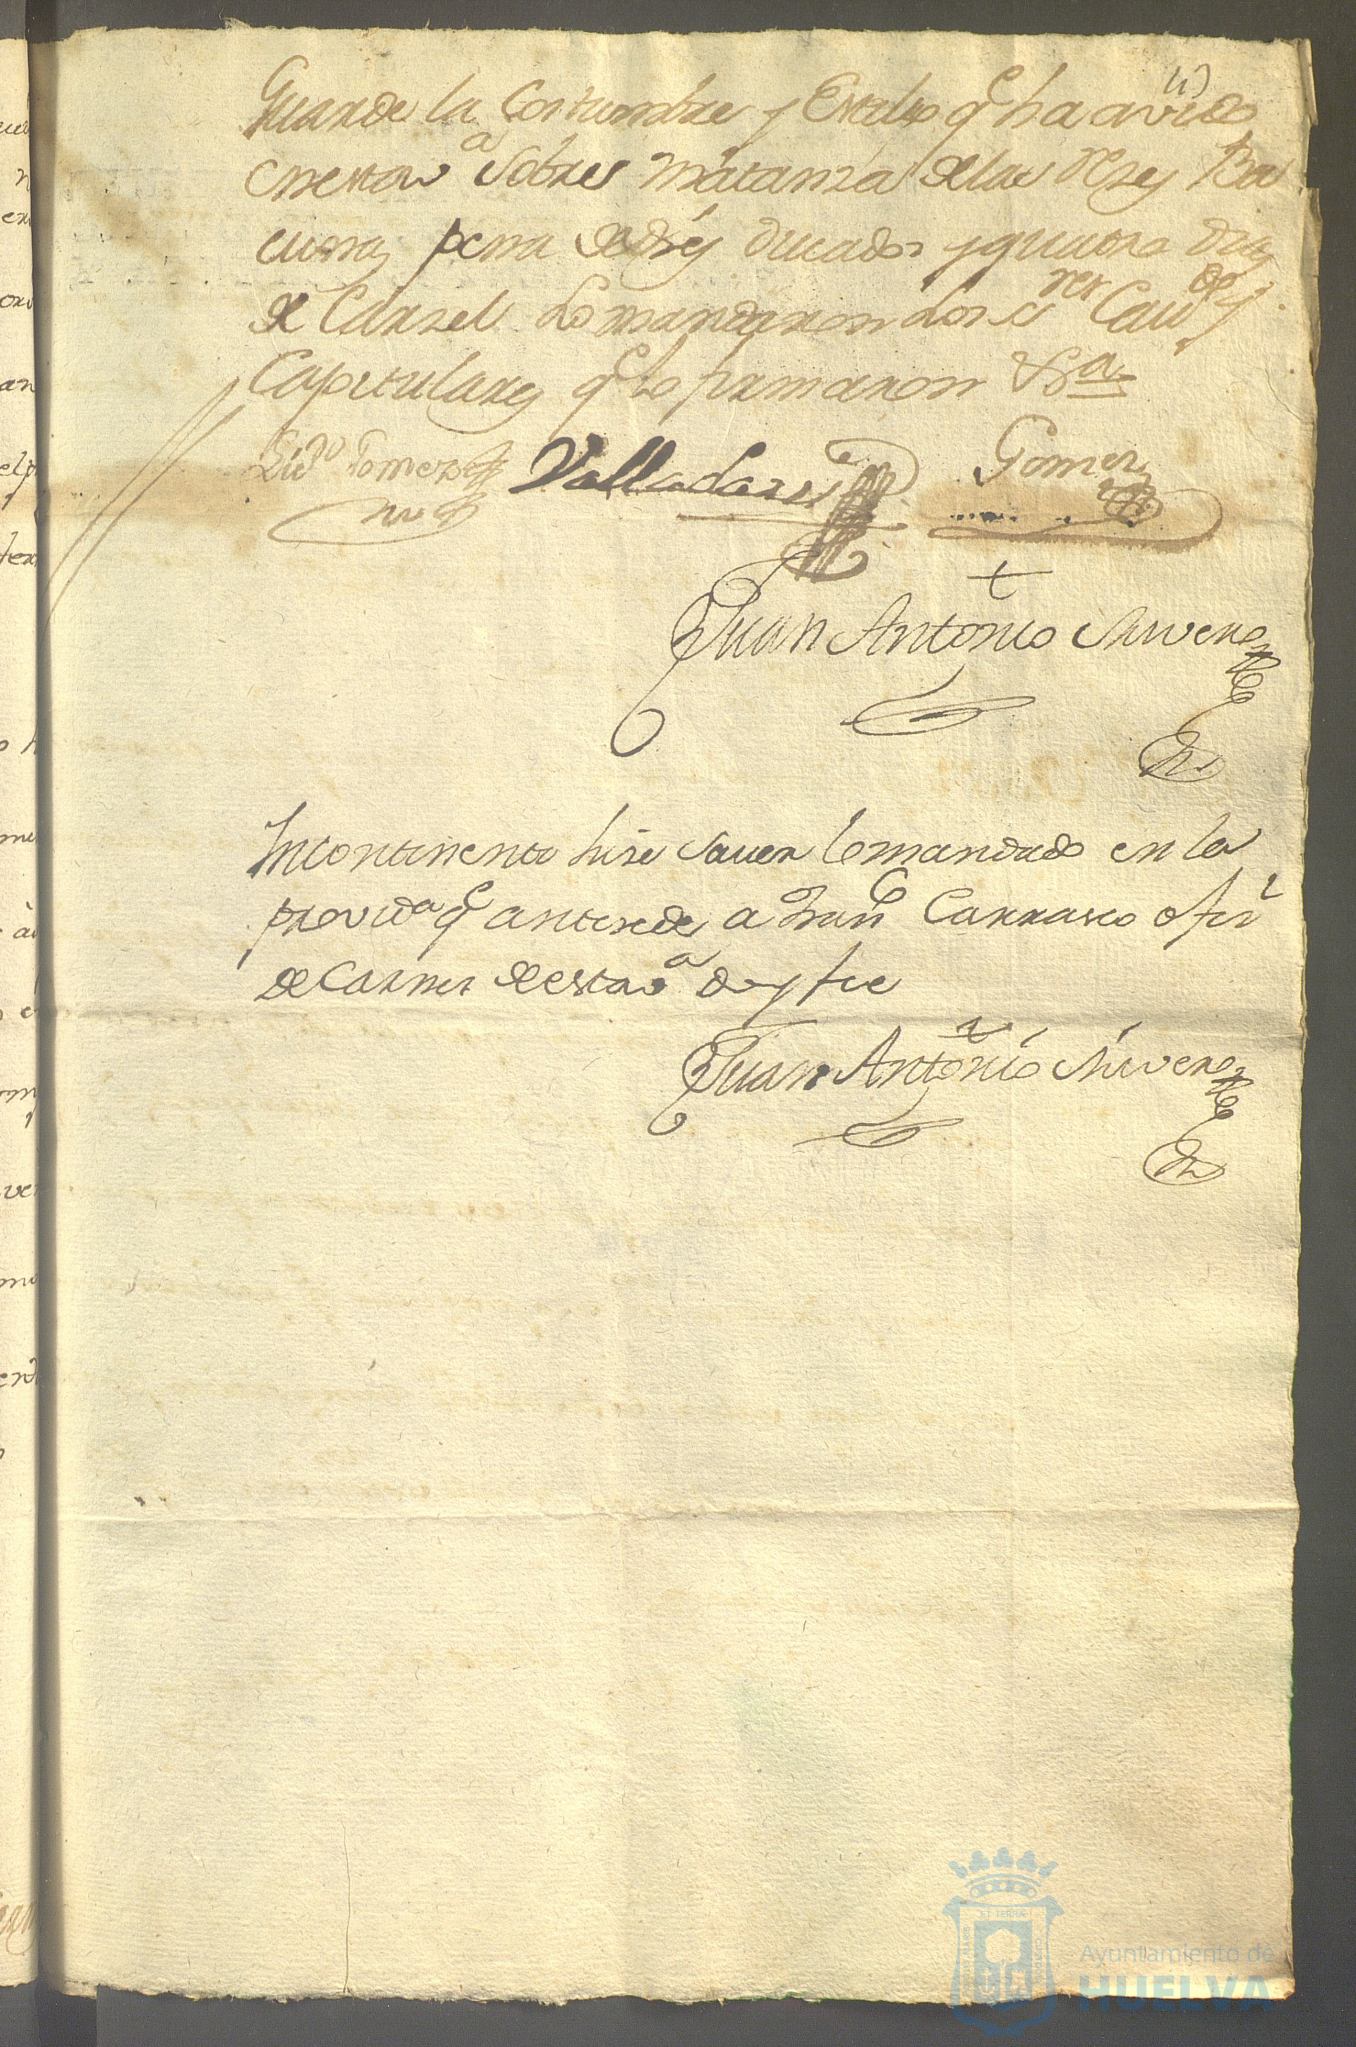 Guarde la Costumbre y Estilo q.e ha avido
en esta v.a sobre matanza de las Reses Ba
cunas pena de dies ducados y quatro dias
de Carzel Lo mandaron Los S.res Cau.do y
Capitulares q.e Lo firmaron
Lic.do Gomez
Valladares
Gomez
Juan Antonio Rivero
Incontinenti hise saver lo mandado en la
provid.a q.e antesede a Fran.co Carrasco ofi.l
de Carnes de esta v.a doy fee
Juan Antonio Rivero
Ayuntamiento de
HUELVA